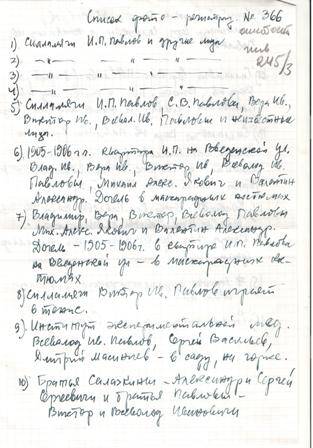 Список фото – регистрац. № 366
245/3
1) Силламяги И.П. Павлов и другие лица
2) —"— " —"—
3) —"— " —"—
4) —"— " —"—
5) Силламяги И.П. Павлов, С.В. Павлова, Вера Ив.,
Виктор Ив., Всевол. Ив. Павловы и неизвестные
лица.
6) 1905-1906 г.г. квартира И.П. на Введенской ул.
Влад. Ив., Вера Ив., Виктор Ив., Всевол. Ив.
Павловы, Михаил Алекс. Якович и Валентин
Александр. Догель в маскарадных костюмах
7) Владимир, Вера, Виктор, Всеволод Павловы
Мих. Алекс. Якович и Валентин Александр.
Догель – 1905-1906 г. в квартире И.П. Павлова
на Введенской ул – в маскарадных кос-
тюмах
8) Силламяги Виктор Ив. Павлов играет
в теннис.
9) Институт экспериментальной мед.
Всеволод Ив. Павлов, Сергей Васильев,
Дмитрий – в саду, на горке.
10) Братья Салазкины – Александр и Сергей
Сергеевичи и братья Павловы –
Виктор и Всеволод Ивановичи